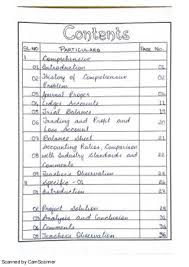 Contents
SL.NO PARTICULARS PAGE NO.
1 Comprehensive
01 Introduction 01
02 History of Comprehensive Problem 02
03 Journal Proper
04 Ledger Accounts 11
05 Trial Balance
06 Trading and Profit and Loss Account
09 Balance Sheet
Accounting Ratios, Comparison with Industry Standards and Comments
Teachers Observation
Specific - 01
01 Introduction
02 Project Solution
03 Analysis and Conclusion
04 Comments
05 Teachers Observation 36
Scanned by CamScanner